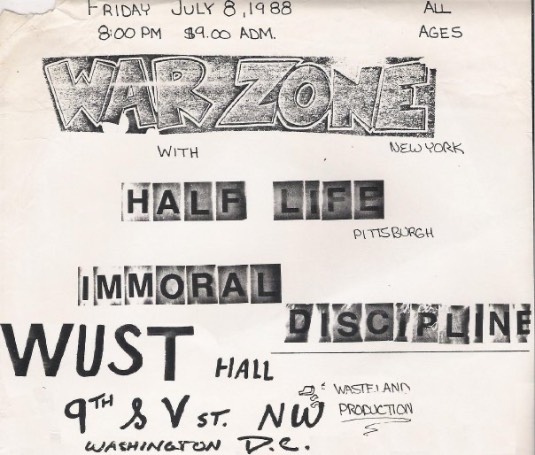 FRIDAY JULY 8, 1988 ALL
8:00 PM $9.00 ADM. AGES
WAR ZONE
WITH NEW YORK
HALF LIFE
PITTSBURGH
IMMORAL
DISCIPLINE
WUST HALL
9TH & V ST. NW
WASHINGTON D.C.
WASTELAND
PRODUCTION